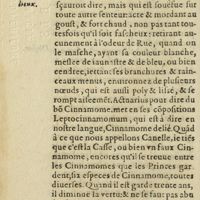 beux.
sçauroit dire, mais qui est souëfue sur
toute autre senteur: acre & mordant au
goust, & fort chaud, non pas tant tou-
tesfois qu'il soit fascheux: retirant au-
cunement à l'odeur de Rue, quand on
le masche, ayant sa couleur blanche,
meslee de teinture & de bleu, ou bien
cendree; iettant ses branchures & rain-
ceaux menus, enuironnez de plusieurs
nœuds, qui est aussi poly & lissé, & se
rompt aiseemẽt. Actuarius pour dire du
bõ Cinnamome, met en ses cõpositions
Leptocinnamomum, qui est à dire en
nostre langue, Cinnamome delié. Quãd
à ce que nous appellons Canelle, ie tiẽs
que c'est la Casse, ou bien vn faux Cin-
namome, encores qu'il se treuue entre
les Cinnamomes que les Princes gar-
dent, six especes de Cinnamome, toutes
diuerses. Quand il est gardé trente ans,
il diminue la vertu: & ne se faut pas abu